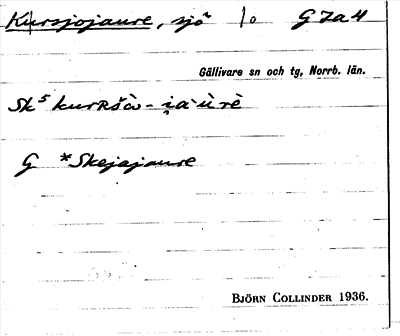 Kursjojaure, sjö lo G 7a4
Gällivare sn och tg, Norrb. län.
Sk⁵ kurʀšὰυ - i̯a·ù·rè
G *Skejajaure
BJÖRN COLLINDER 1936.